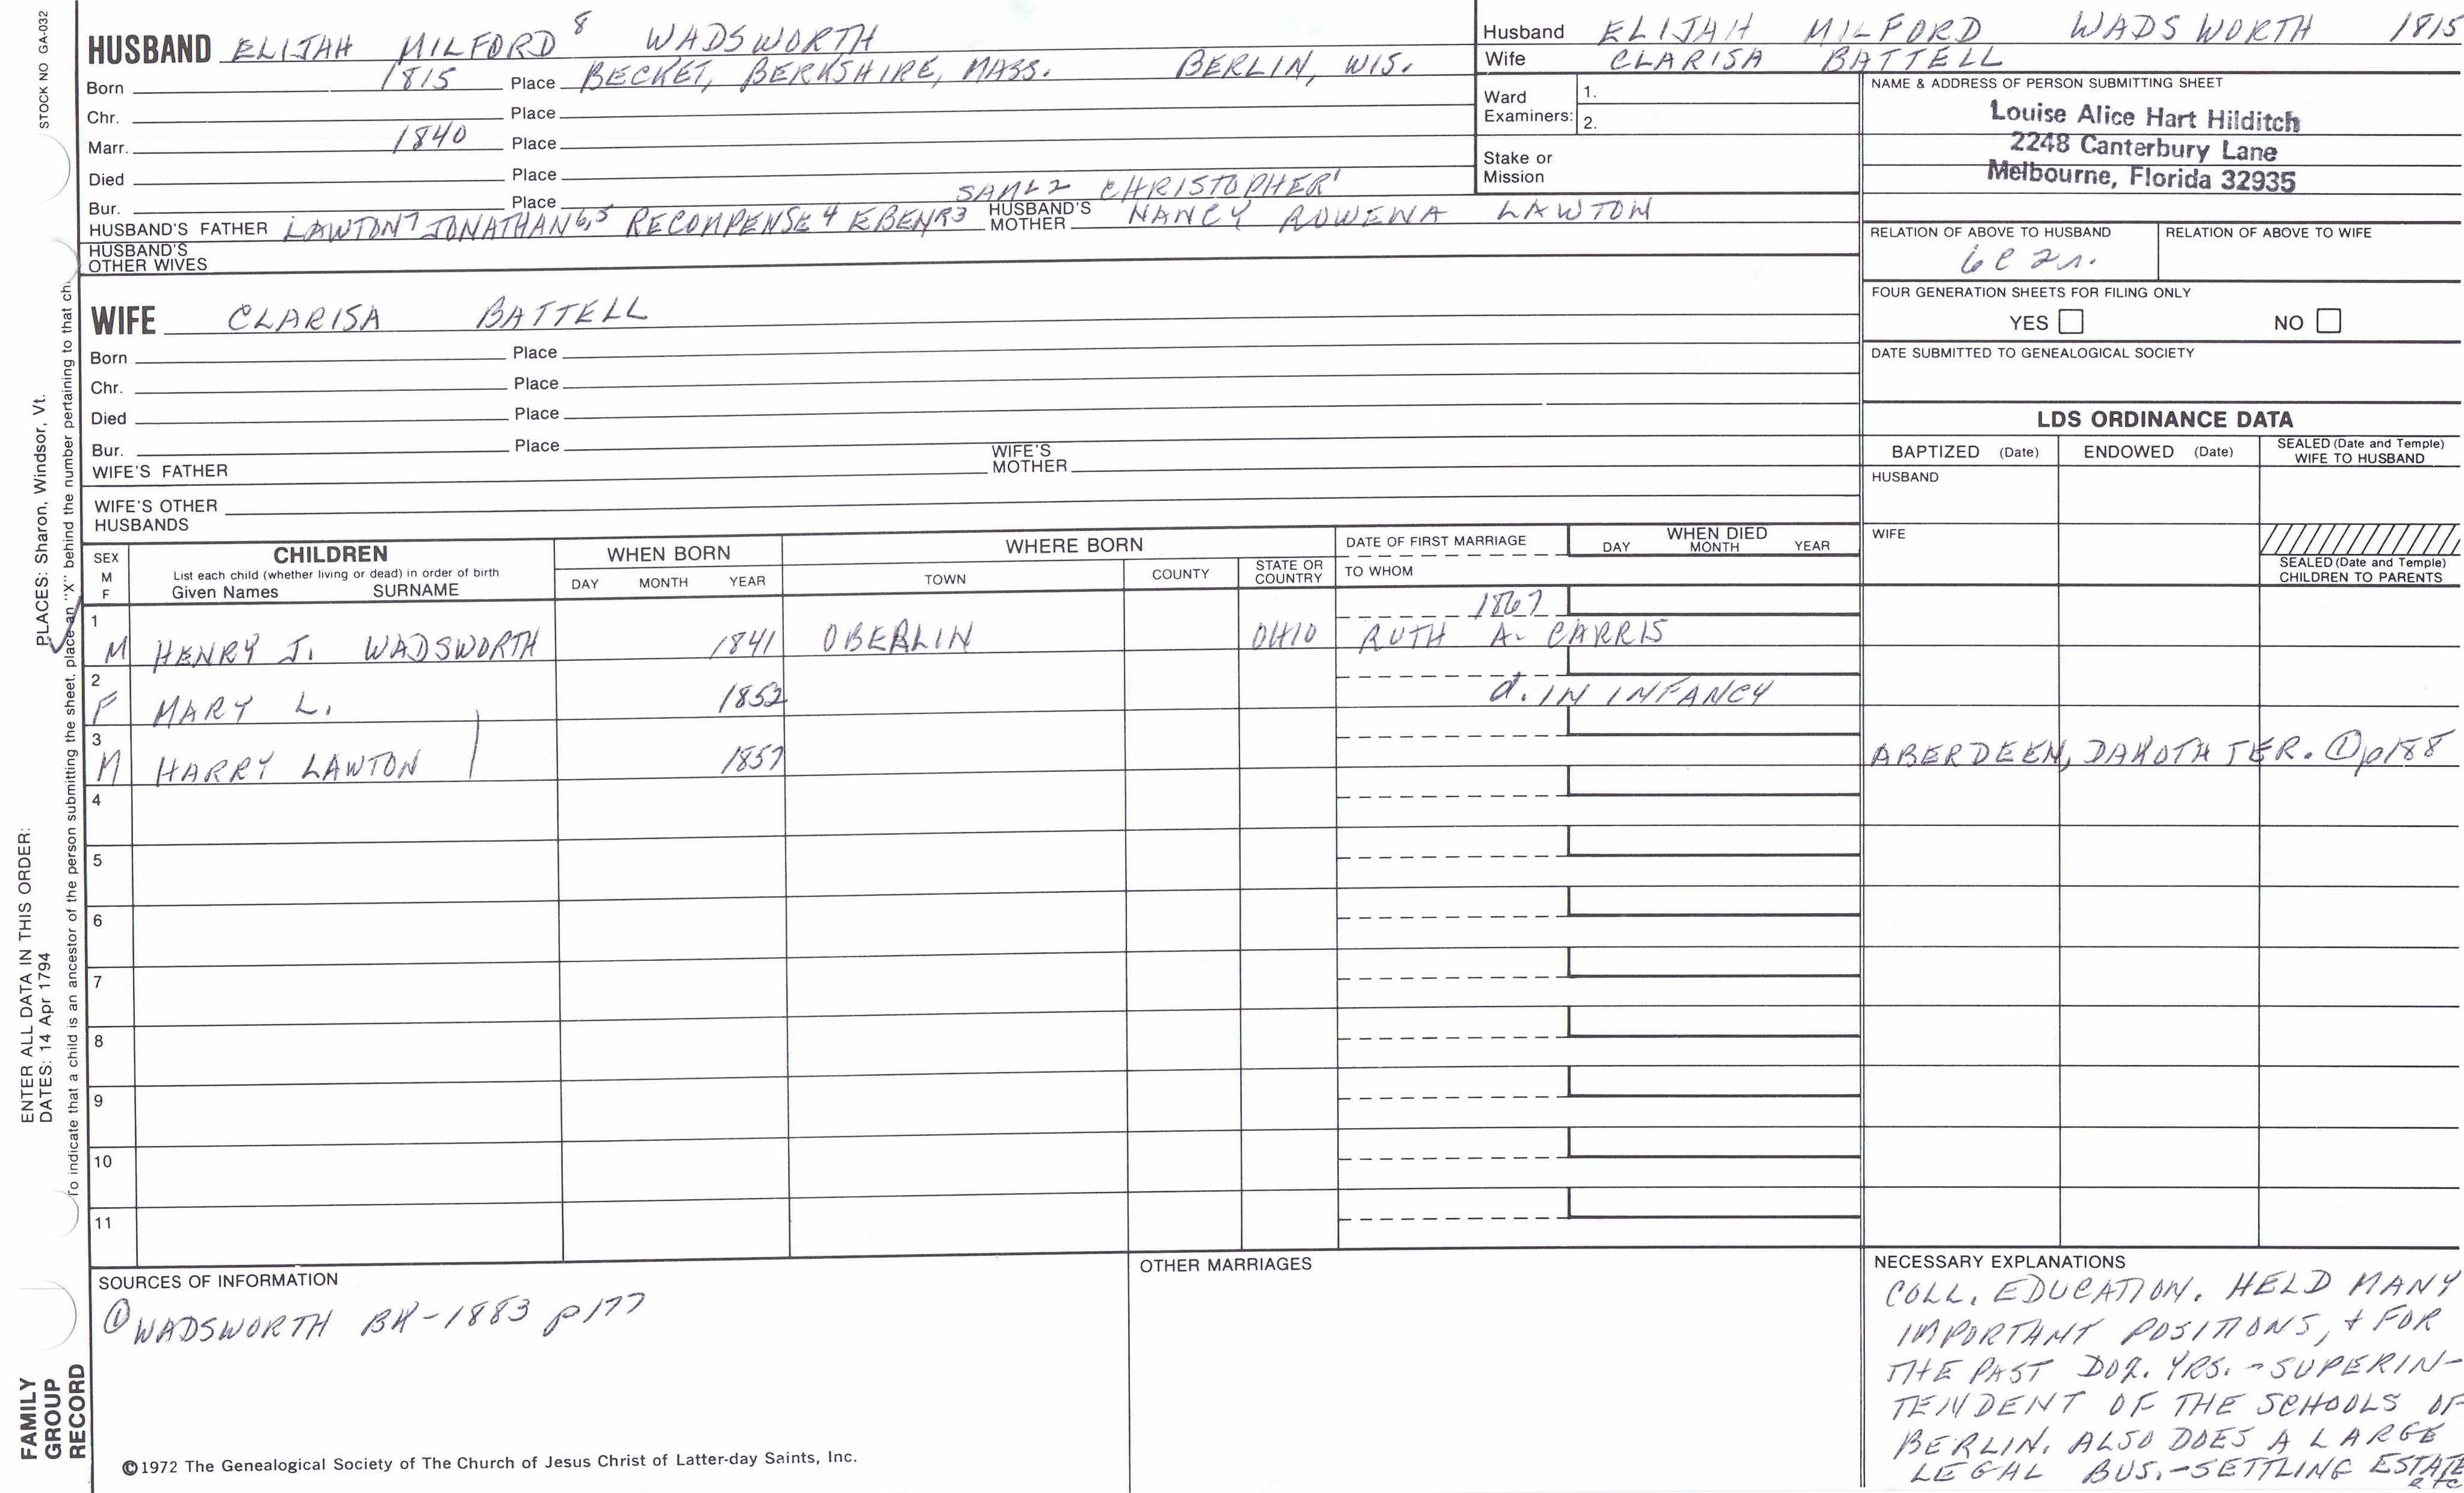 STOCK NO GA-032
HUSBAND ELIJAH MILFORD 8 WADSWORTH
Born 1815 Place BECKET, BERKSHIRE, MASS. BERLIN, WIS.
Chr. Place
Marr. 1840 Place
Died Place
Bur. Place SAML 2 CHRISTOPHER 1
HUSBAND'S FATHER LAWTON 7 JONATHAN 6,5 RECOMPENSE 4 EBENR 3 HUSBAND'S MOTHER NANCY ROWENA LAWTON
HUSBAND'S OTHER WIVES
WIFE CLARISA BATTELL
Born Place
Chr. Place
Died Place
Bur. Place
WIFE'S FATHER WIFE'S MOTHER
WIFE'S OTHER HUSBANDS
Husband ELIJAH MILFORD WADSWORTH 1815
Wife CLARISA BATTELL
Ward Examiners: 1.
2.
Stake or Mission
NAME & ADDRESS OF PERSON SUBMITTING SHEET
Louise Alice Hart Hilditch
2248 Canterbury Lane
Melbourne, Florida 32935
RELATION OF ABOVE TO HUSBAND RELATION OF ABOVE TO WIFE
6C 2r.
FOUR GENERATION SHEETS FOR FILING ONLY
YES NO
DATE SUBMITTED TO GENEALOGICAL SOCIETY
LDS ORDINANCE DATA
BAPTIZED (Date) ENDOWED (Date) SEALED (Date and Temple) WIFE TO HUSBAND
HUSBAND
WIFE
SEALED (Date and Temple) CHILDREN TO PARENTS
SEX M F CHILDREN WHEN BORN WHERE BORN DATE OF FIRST MARRIAGE WHEN DIED
List each child (whether living or dead) in order of birth
Given Names SURNAME DAY MONTH YEAR TOWN COUNTY STATE OR COUNTRY TO WHOM DAY MONTH YEAR
1 1867
M HENRY J. WADSWORTH 1841 OBERLIN OHIO RUTH A. CARRIS
2
F MARY L. 1852 d. IN INFANCY
3
M HARRY LAWTON 1857 ABERDEEN, DAKOTA TER. ① p188
4
5
6
7
8
9
10
11
SOURCES OF INFORMATION
① WADSWORTH BK-1883 p177
OTHER MARRIAGES
NECESSARY EXPLANATIONS
COLL. EDUCATION. HELD MANY
IMPORTANT POSITIONS, + FOR
THE PAST DOZ. YRS. - SUPERIN-
TENDENT OF THE SCHOOLS OF
BERLIN. ALSO DOES A LARGE
LEGAL BUS.-SETTLING ESTATE
etc
©1972 The Genealogical Society of The Church of Jesus Christ of Latter-day Saints, Inc.
FAMILY
GROUP
RECORD
ENTER ALL DATA IN THIS ORDER:
DATES: 14 Apr 1794
PLACES: Sharon, Windsor, Vt.
To indicate that a child is an ancestor of the person submitting the sheet, place an "X" behind the number pertaining to that ch